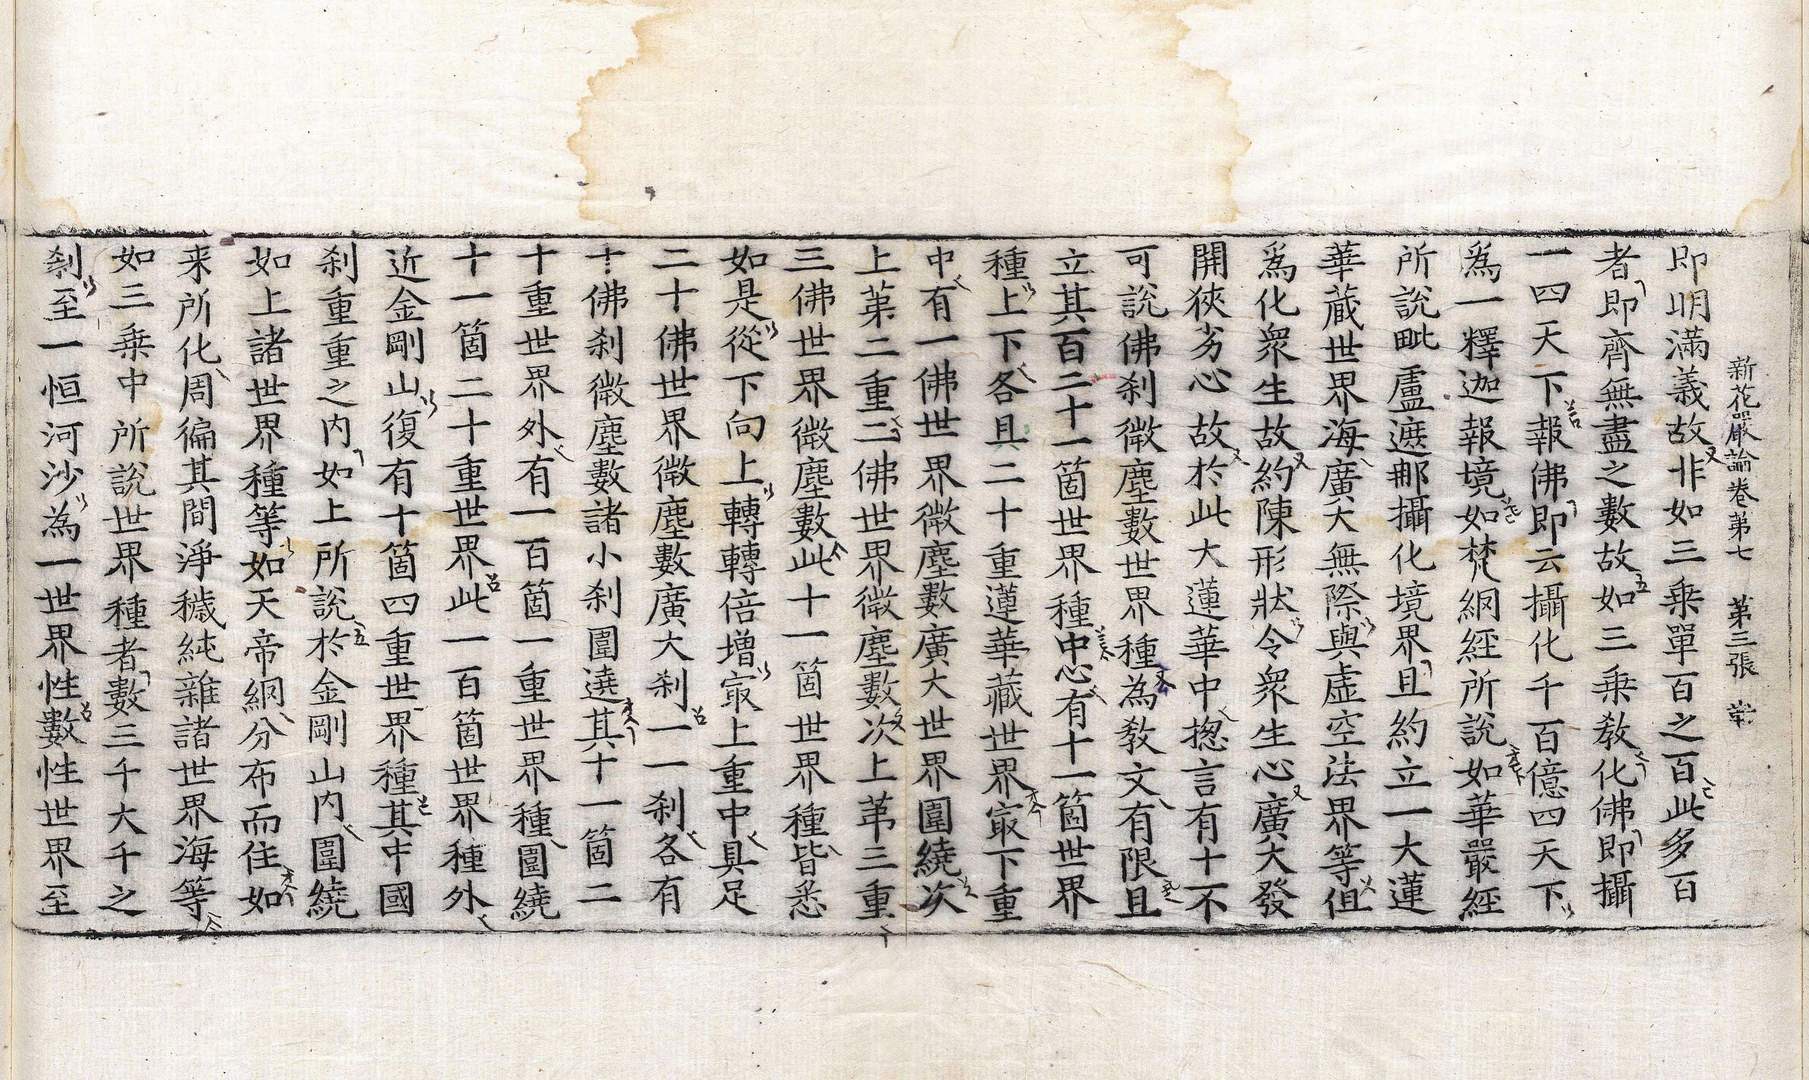 新花嚴論卷第七　第三張　常
即明滿義故非如三乗單百之百此多百
者即齊無盡之數故如三乗教化佛即攝
一四天下報佛即云攝化千百億四天下
為一釋迦報境如梵網經所說如華嚴經
所說毗盧遮那攝化境界且約立一大蓮
華藏世界海廣大無際與虛空法界等但
為化衆生故約陳形狀令衆生心廣大發
開狹劣心故於此大蓮華中揔言有十不
可說佛刹微塵數世界種為教文有限且
立其百二十一箇世界種中心有十一箇世界
種上下各具二十重蓮華藏世界㝡下重
中有一佛世界微塵數廣大世界圍繞次
上苐二重二佛世界微塵數次上苐三重
三佛世界微塵數此十一箇世界種皆悉
如是從下向上轉轉倍增㝡上重中具足
二十佛世界微塵數廣大刹一一刹各有
十佛刹微塵數諸小刹圍遶其十一箇二
十重世界外有一百箇一重世界種圍繞
十一箇二十重世界此一百箇世界種外
近金剛山復有十箇四重世界種其中國
刹重重之内如上所說於金剛山内圍繞
如上諸世界種等如天帝網分布而住如
来所化周徧其間淨穢純雜諸世界海等
如三乗中所說世界種者數三千大千之
刹至一恒河沙為一世界性數性世界至